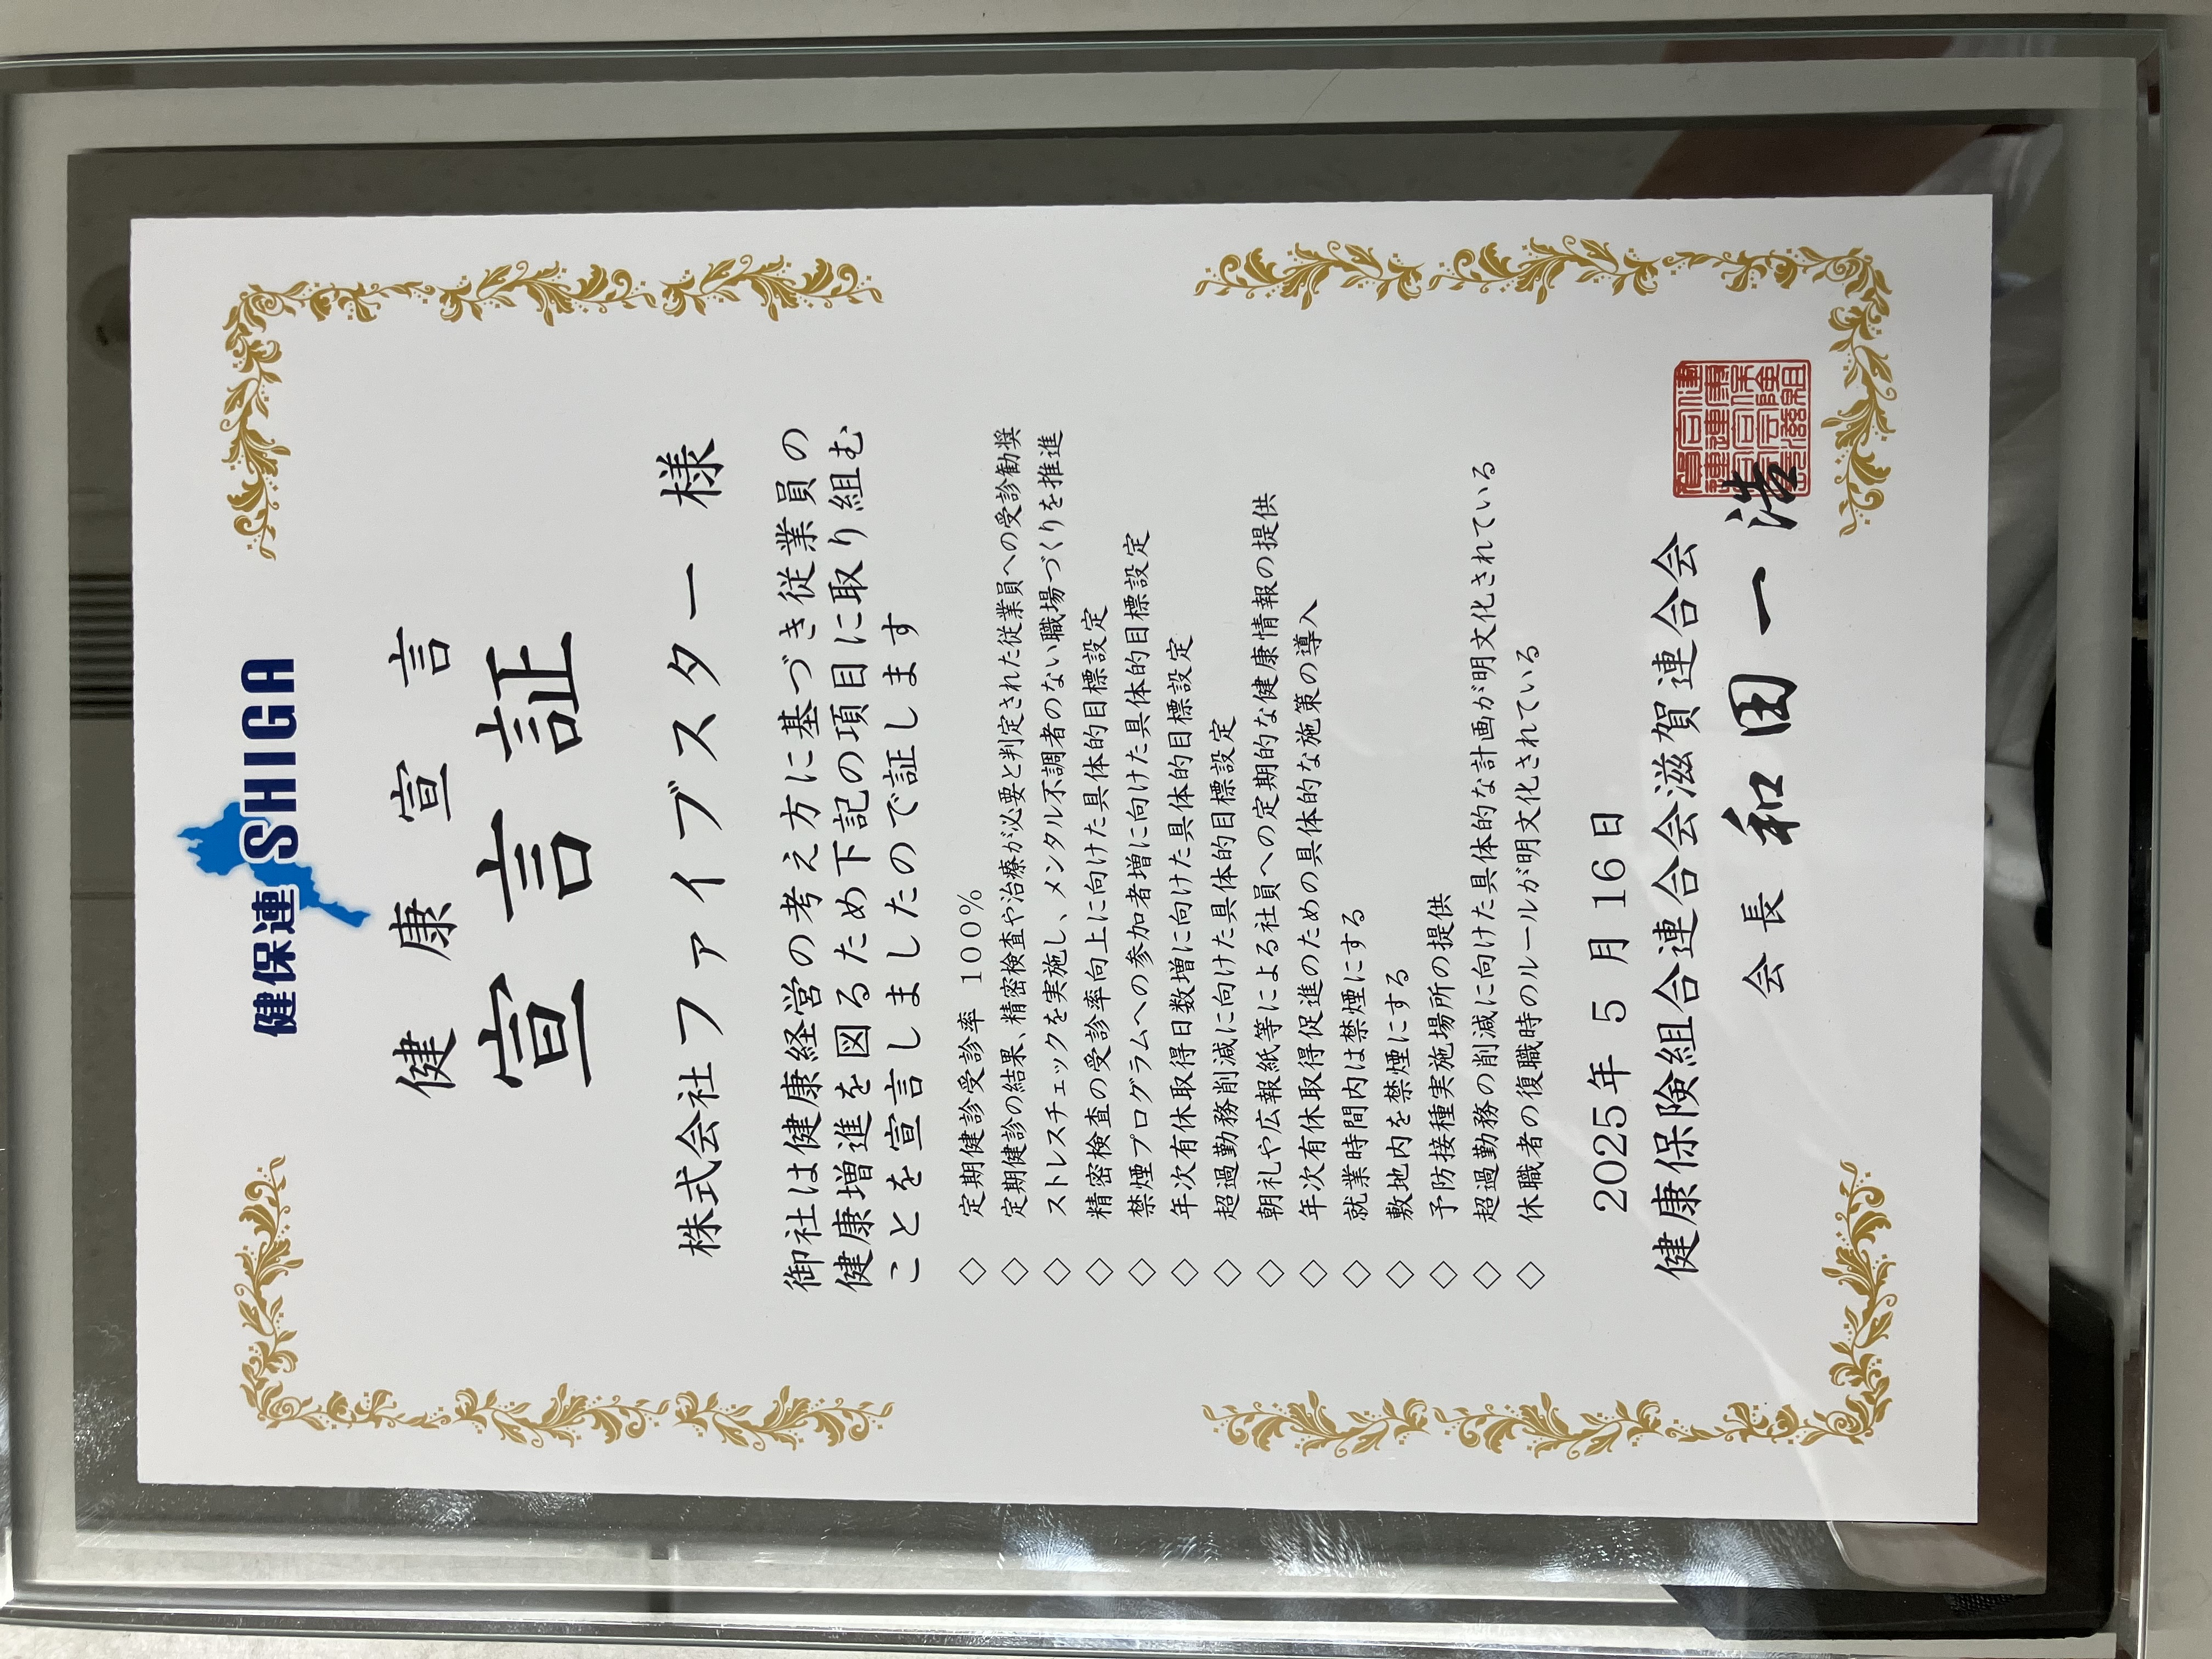 健保連SHIGA
健康宣言
宣言証
株式会社ファイブスター 様
御社は健康経営の考え方に基づき従業員の
健康増進を図るため下記の項目に取り組む
ことを宣言しましたので証します
◇ 定期健診受診率 100%
◇ 定期健診の結果、精密検査や治療が必要と判定された従業員への受診勧奨
◇ ストレスチェックを実施し、メンタル不調者のない職場づくりを推進
◇ 精密検査の受診率向上に向けた具体的目標設定
◇ 禁煙プログラムへの参加者増に向けた具体的目標設定
◇ 年次有休取得日数増に向けた具体的目標設定
◇ 超過勤務削減に向けた具体的目標設定
◇ 朝礼や広報紙等による社員への定期的な健康情報の提供
◇ 年次有休取得促進のための具体的な施策の導入
◇ 就業時間内は禁煙にする
◇ 敷地内を禁煙にする
◇ 予防接種実施場所の提供
◇ 超過勤務の削減に向けた具体的な計画が明文化されている
◇ 休職者の復職時のルールが明文化されている
2025年 5 月 16 日
健康保険組合連合会滋賀連合会
会長 和田一浩